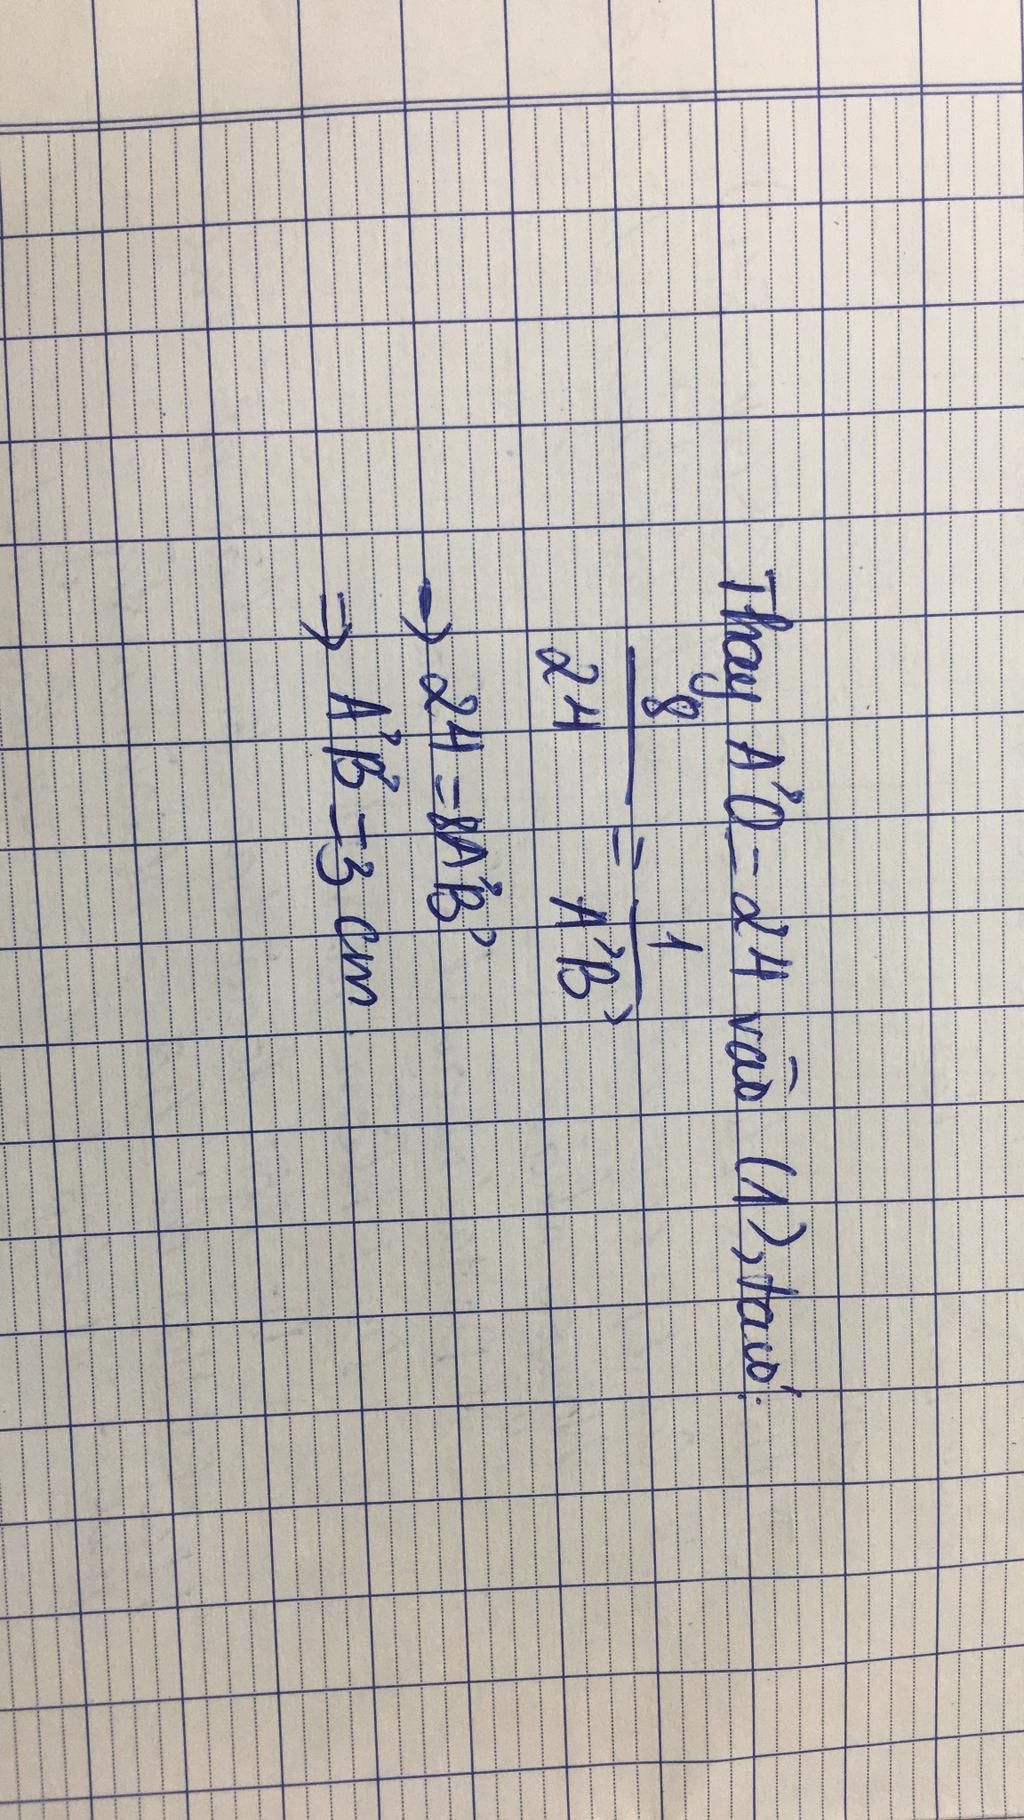 Thay A'O = 24 vào (1), ta có:
8/24 = 1/A'B'
=> 24 = 8A'B'
=> A'B' = 3 cm